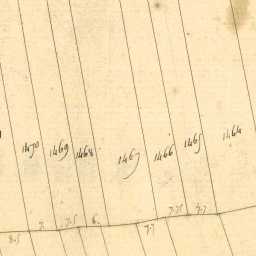 1470 1469 1468 1467 1466 1465 1464
7.5 6.
8.5 7.7